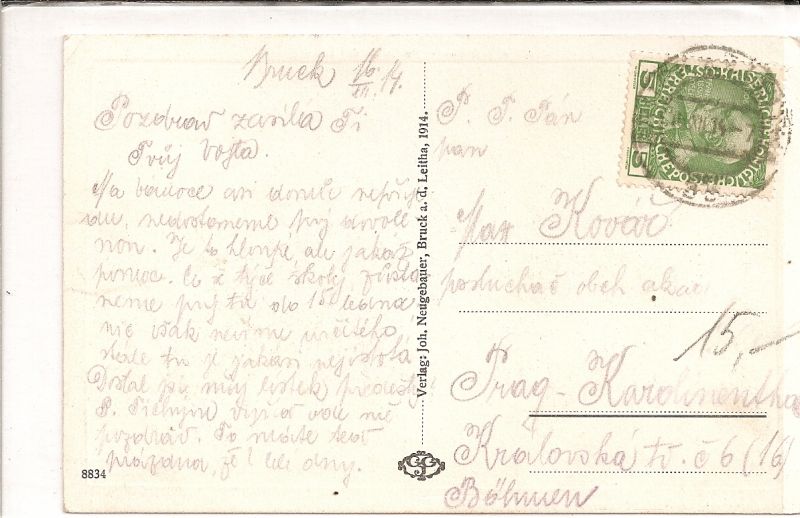 Bruck 16/XII. 14.
Pozdrav zasílá Ti
Tvůj Vojta.
Na vánoce asi domů nepřije
du, nedostaneme prý dovole
non. Je to hloupé, ale jaká
pomoc. Co z týče školy, zůsta
neme prý tu do 15 ledna
nic však nevíme určitého
stále tu je jakási nejistota
Dostal jsi můj lístek předešlý
P. Tichým vyřiď ode mě
pozdrav. To máte teď
prázdno, že! celé dny.
8834
Verlag: Joh. Neugebauer, Bruck a. d. Leitha, 1914.
P. T. Pán
pan
Max Kovář
posluchač obch. akad
15,—
Prag - Karolinenthal
Královská tř. č 6 (16)
Böhmen
5 HELLER 5